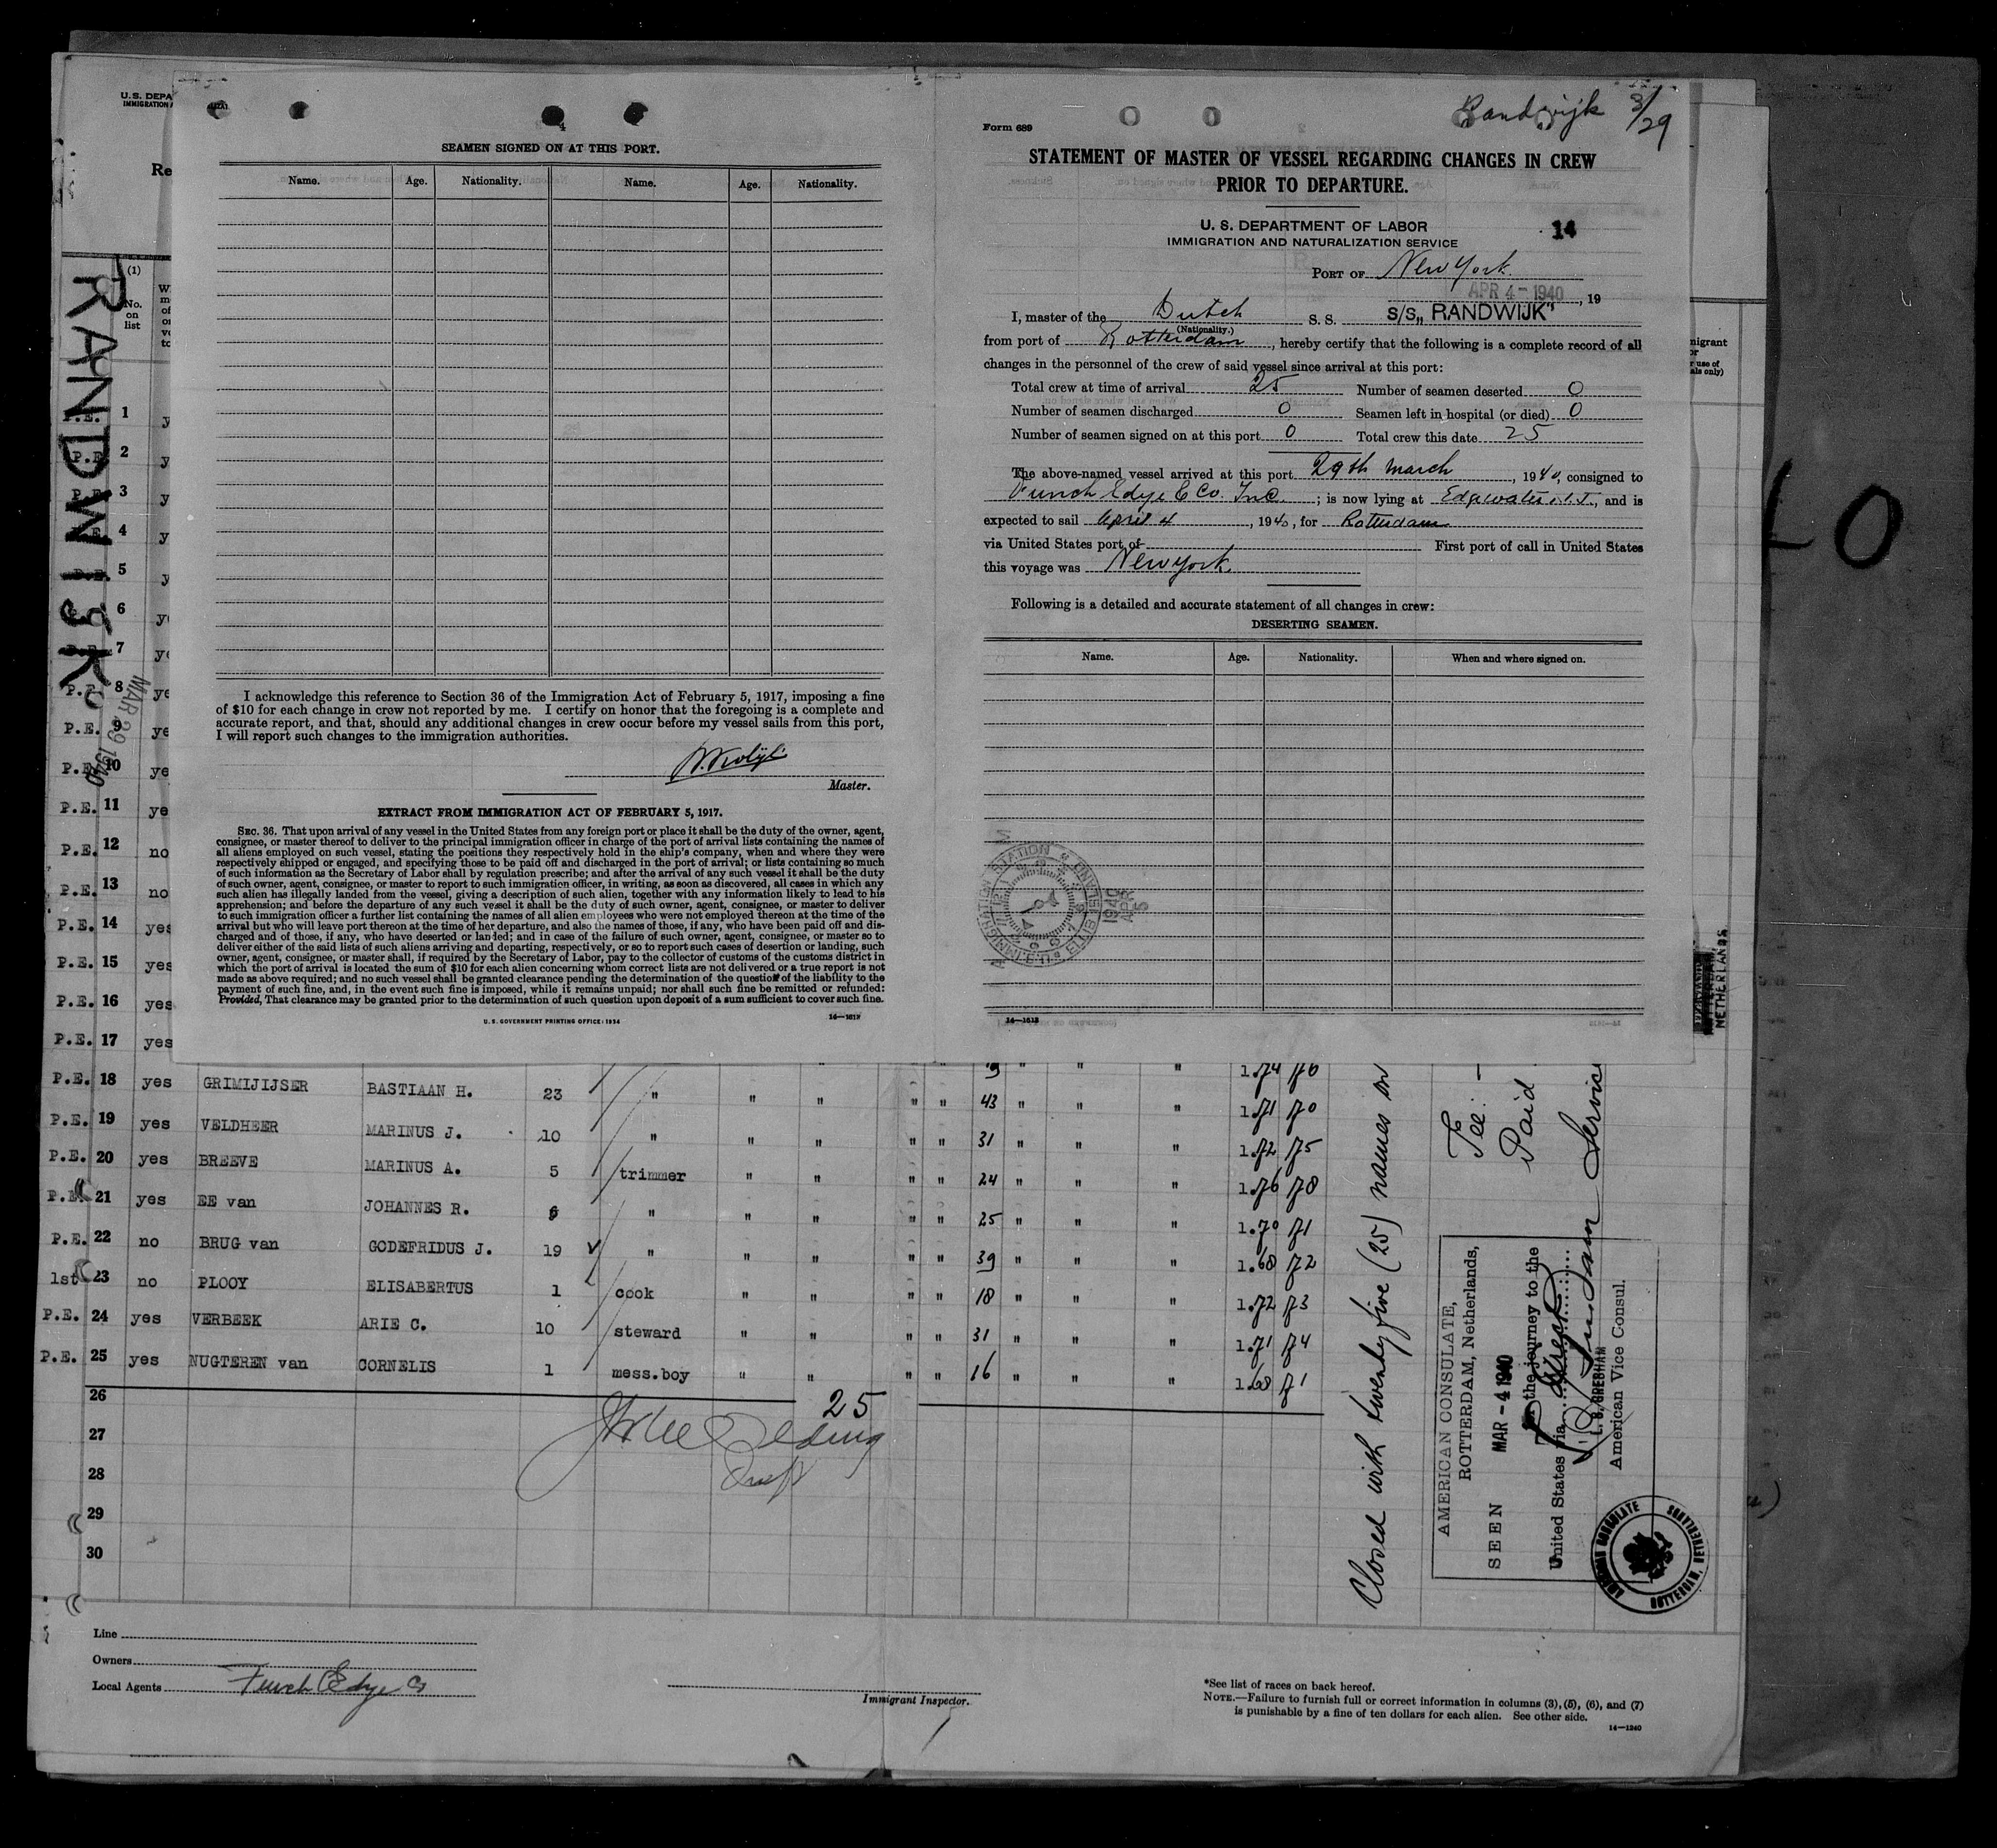 U.S. DEPA
IMMIGRATION A
Re
RANDWIJK
MAR 29 1940
(1)
No.
on
list
SEAMEN SIGNED ON AT THIS PORT.
Name. Age. Nationality. Name. Age. Nationality.
I acknowledge this reference to Section 36 of the Immigration Act of February 5, 1917, imposing a fine
of $10 for each change in crew not reported by me. I certify on honor that the foregoing is a complete and
accurate report, and that, should any additional changes in crew occur before my vessel sails from this port,
I will report such changes to the immigration authorities.
Master.
EXTRACT FROM IMMIGRATION ACT OF FEBRUARY 5, 1917.
SEC. 36. That upon arrival of any vessel in the United States from any foreign port or place it shall be the duty of the owner, agent,
consignee, or master thereof to deliver to the principal immigration officer in charge of the port of arrival lists containing the names of
all aliens employed on such vessel, stating the positions they respectively hold in the ship's company, when and where they were
respectively shipped or engaged, and specifying those to be paid off and discharged in the port of arrival; or lists containing so much
of such information as the Secretary of Labor shall by regulation prescribe; and after the arrival of any such vessel it shall be the duty
of such owner, agent, consignee, or master to report to such immigration officer, in writing, as soon as discovered, all cases in which any
such alien has illegally landed from the vessel, giving a description of such alien, together with any information likely to lead to his
apprehension; and before the departure of any such vessel it shall be the duty of such owner, agent, consignee, or master to deliver
to such immigration officer a further list containing the names of all alien employees who were not employed thereon at the time of the
arrival but who will leave port thereon at the time of her departure, and also the names of those, if any, who have been paid off and dis-
charged and of those, if any, who have deserted or landed; and in case of the failure of such owner, agent, consignee, or master so to
deliver either of the said lists of such aliens arriving and departing, respectively, or so to report such cases of desertion or landing, such
owner, agent, consignee, or master shall, if required by the Secretary of Labor, pay to the collector of customs of the customs district in
which the port of arrival is located the sum of $10 for each alien concerning whom correct lists are not delivered or a true report is not
made as above required; and no such vessel shall be granted clearance pending the determination of the question of the liability to the
payment of such fine, and, in the event such fine is imposed, while it remains unpaid; nor shall such fine be remitted or refunded:
Provided, That clearance may be granted prior to the determination of such question upon deposit of a sum sufficient to cover such fine.
U.S. GOVERNMENT PRINTING OFFICE: 1934 14—1613
Randwijk 3/29
Form 689
STATEMENT OF MASTER OF VESSEL REGARDING CHANGES IN CREW
PRIOR TO DEPARTURE.
U. S. DEPARTMENT OF LABOR 14
IMMIGRATION AND NATURALIZATION SERVICE
PORT OF New York
APR 4 - 1940, 19
I, master of the Dutch S. S. S/S„ RANDWIJK"
(Nationality.)
from port of Rotterdam, hereby certify that the following is a complete record of all
changes in the personnel of the crew of said vessel since arrival at this port:
Total crew at time of arrival 25 Number of seamen deserted 0
Number of seamen discharged 0 Seamen left in hospital (or died) 0
Number of seamen signed on at this port 0 Total crew this date 25
The above-named vessel arrived at this port 29th march, 1940, consigned to
Funch Edye & Co. Inc.; is now lying at Edgwater N.J., and is
expected to sail April 4, 1940, for Rotterdam
via United States port of First port of call in United States
this voyage was New York
Following is a detailed and accurate statement of all changes in crew:
DESERTING SEAMEN.
Name. Age. Nationality. When and where signed on.
14—1613
NETHERLANDS
P.E. 1 y
P.E. 2 y
P.E. 3 y
P.E. 4 y
P.E. 5 y
6 y
7 ye
P.E. 8 ye
P.E. 9 ye
P.E. 10 ye
P.E. 11 ye
P.E. 12 no
P.E. 13 no
P.E. 14 yes
P.E. 15 yes
P.E. 16 yes
P.E. 17 yes 1.74 76
P.E. 18 yes GRIMIJIJSER BASTIAAN H. 23 " " " " " 43 " " " 1.71 70
P.E. 19 yes VELDHEER MARINUS J. 10 " " " " " 31 " " " 1.72 75
P.E. 20 yes BREEVE MARINUS A. 5 trimmer " " " " 24 " " " 1.76 78
P.E. 21 yes EE van JOHANNES R. 6 " " " " " 25 " " " 1.70 71
P.E. 22 no BRUG van GODEFRIDUS J. 19 " " " " " 39 " " " 1.68 72
1st 23 no PLOOY ELISABERTUS 1 cook " " " " 18 " " " 1.72 73
P.E. 24 yes VERBEEK ARIE C. 10 steward " " " " 31 " " " 1.71 74
P.E. 25 yes NUGTEREN van CORNELIS 1 mess.boy " " " " 16 " " " 1.68 71
26 25
27
28
29
30
Closed with twenty five (25) names on
Fee: —
Paid
AMERICAN CONSULATE,
ROTTERDAM, Netherlands,
SEEN MAR - 4 1940
For the journey to the
United States via direct
L. S. GRESHAM
American Vice Consul.
AMERICAN CONSULATE
ROTTERDAM, NETHERLANDS
Line
Owners
Local Agents Funch Edye Co
Immigrant Inspector.
*See list of races on back hereof.
NOTE.—Failure to furnish full or correct information in columns (3), (5), (6), and (7)
is punishable by a fine of ten dollars for each alien. See other side.
14—1240